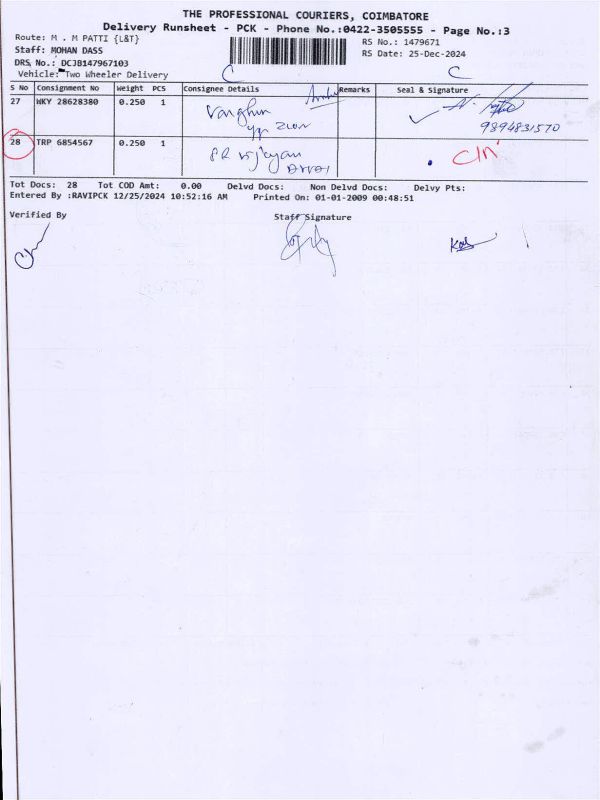 THE PROFESSIONAL COURIERS, COIMBATORE
Delivery Runsheet - PCK - Phone No.:0422-3505555 - Page No.:3
Route: M . M PATTI {L&T}
RS No.: 1479671
Staff: MOHAN DASS
RS Date: 25-Dec-2024
DRS No.: DCJB147967103
Vehicle: Two Wheeler Delivery
C C
S No Consignment No Weight PCS Consignee Details Remarks Seal & Signature
27 HKY 28628380 0.250 1
9894831570
28 TRP 6854567 0.250 1
Tot Docs: 28 Tot COD Amt: 0.00 Delvd Docs: Non Delvd Docs: Delvy Pts:
Entered By :RAVIPCK 12/25/2024 10:52:16 AM Printed On: 01-01-2009 00:48:51
Verified By Staff Signature